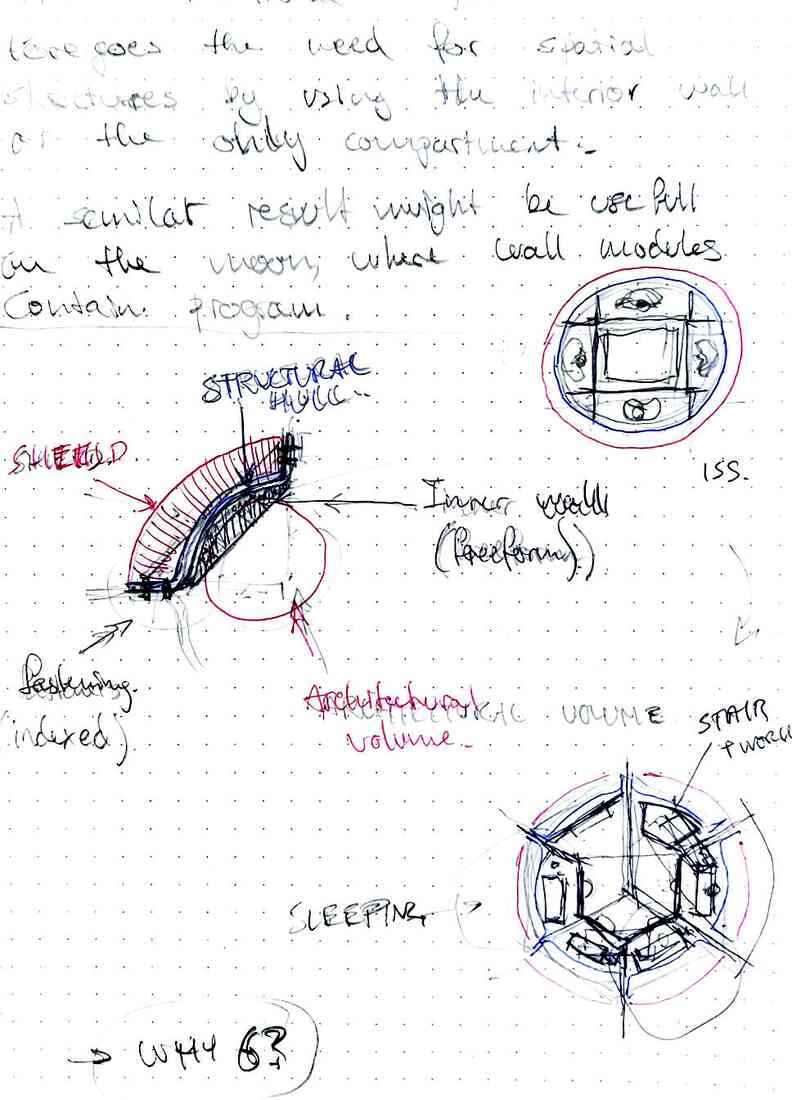 foregoes the need for spatial
structures by using the interior wall
as the only compartment.
A similar result might be usefull
on the moon, where wall modules
Contain program.
STRUCTURAL
HULL
SHIELD
ISS.
Inner wall
(freeform)
fastening
(indexed)
Architectural VOLUME
volume.
STAIR
+ WORK
SLEEPING
→ WHY 6?